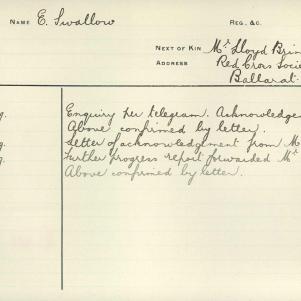 NAME E. Swallow REG. &C.
NEXT OF KIN Mr Lloyd Brin
ADDRESS Red Cross Socie
Ballarat.
g. Enquiry per telegram. Acknowledge
Above confirmed by letter.
g. Letter of acknowledgement from M
g. Further progress report forwarded Mr
Above confirmed by letter.